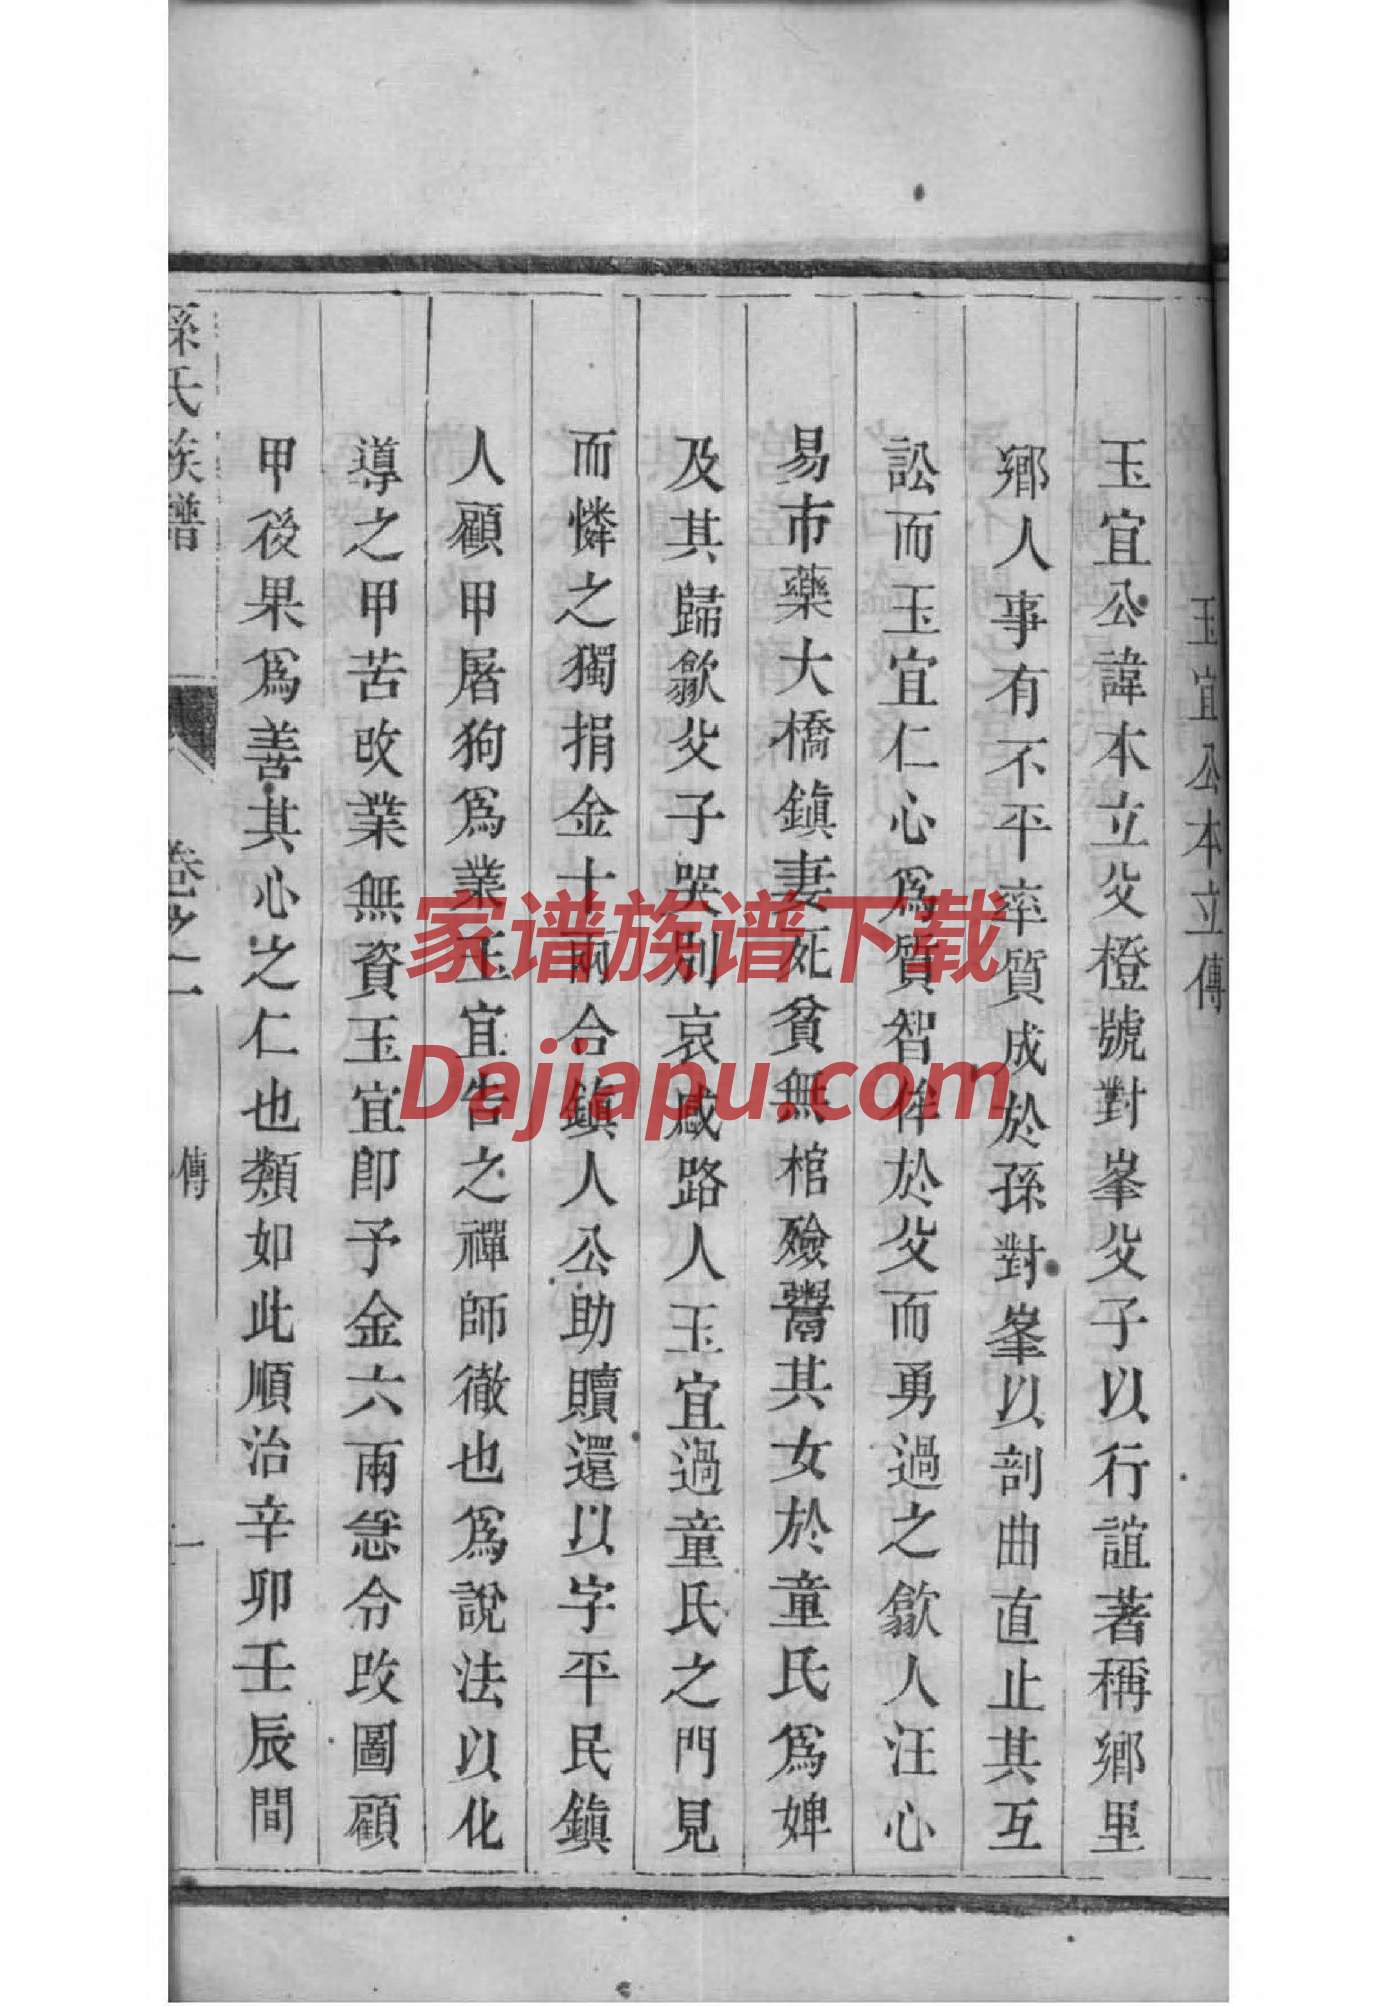 玉宜公本立傳
玉宜公諱本立父橙號對峯父子以行誼著稱鄉里
鄉人事有不平率質成於孫對峯以剖曲直止其互
訟而玉宜仁心爲質智侔於父而勇過之歙人汪心
易市藥大橋鎮妻死貧無棺殮鬻其女於童氏爲婢
及其歸歙父子哭別哀感路人玉宜過童氏之門見
而憐之獨捐金十兩合鎮人公助贖還以字平民鎮
人顧甲屠狗爲業玉宜告之禪師徹也爲說法以化
導之甲苦改業無資玉宜卽予金六兩慫令改圖顧
甲後果爲善其心之仁也類如此順治辛卯壬辰間
孫氏族譜
卷之一
傳
一
家谱族谱下载
Dajiapu.com